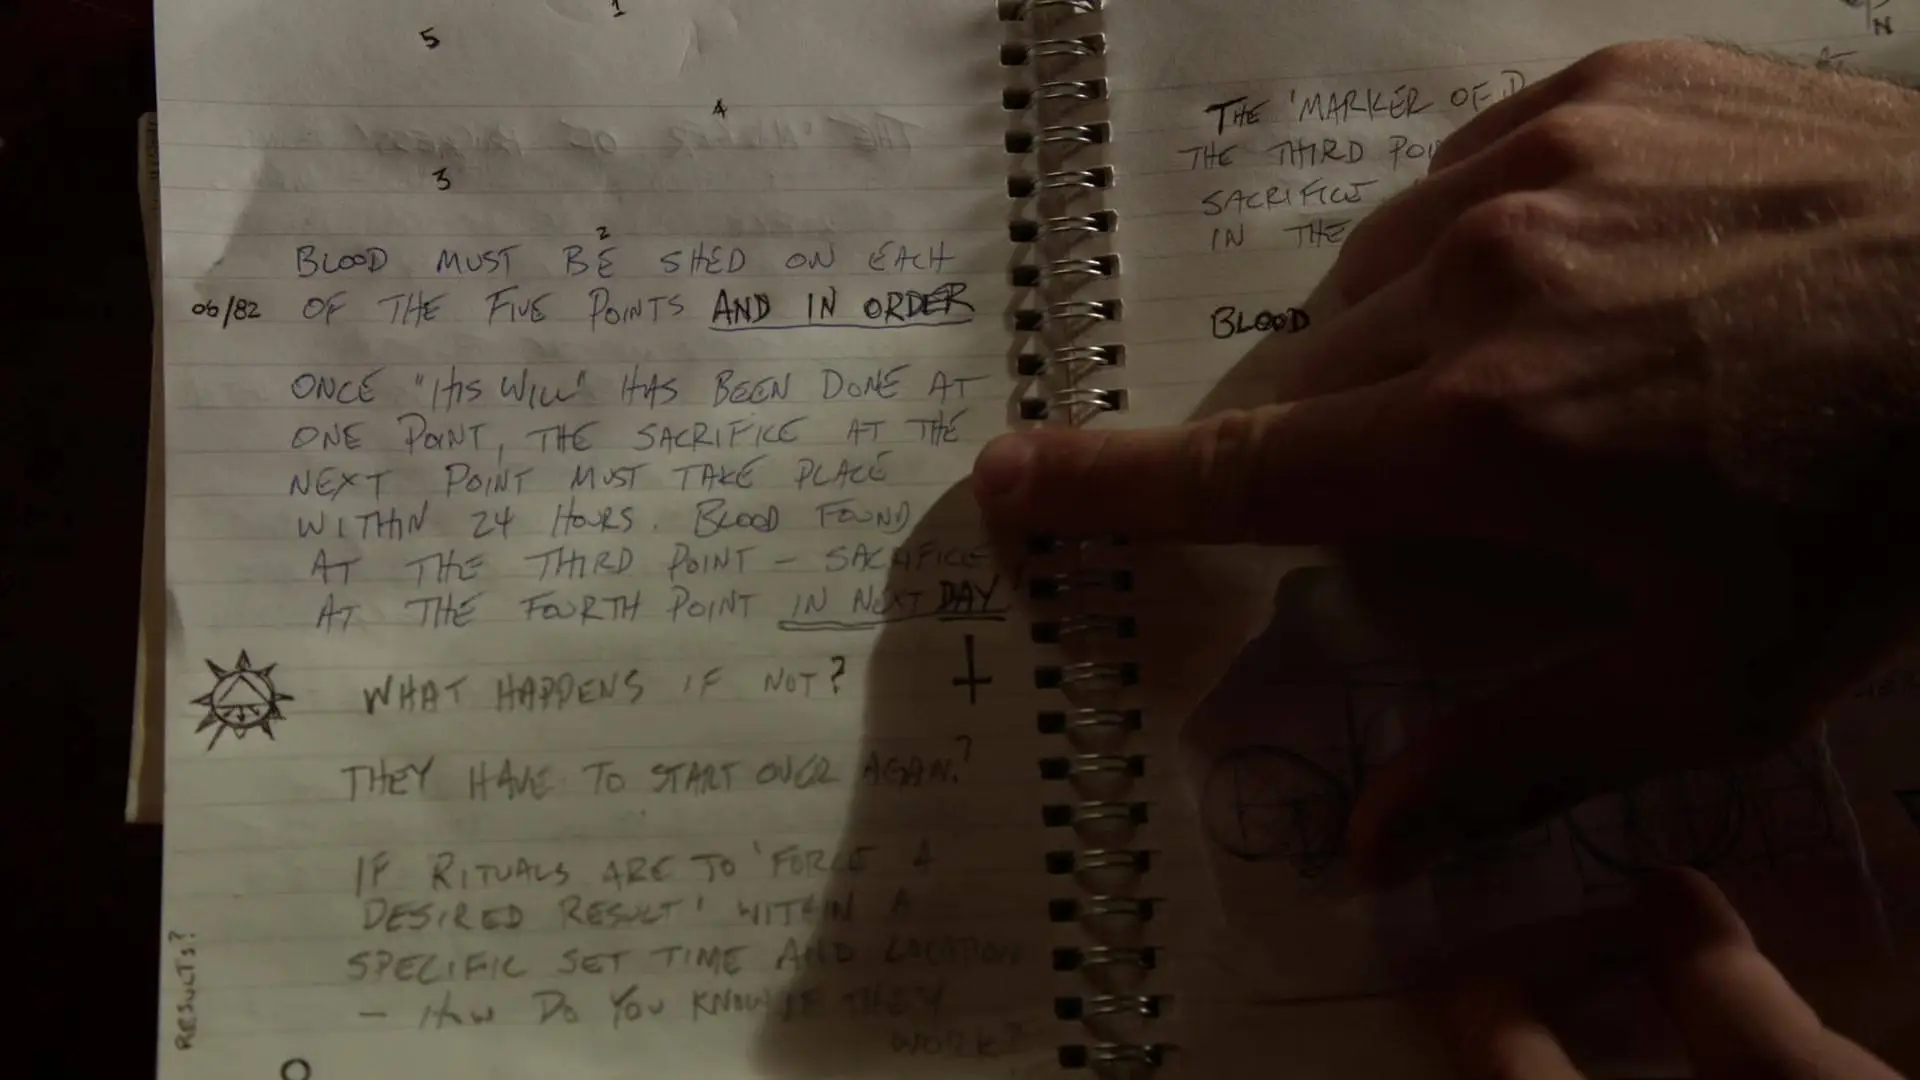 1
5
4
3
2
BLOOD MUST BE SHED ON EACH
06/82 OF THE FIVE POINTS AND IN ORDER
ONCE "HIS WILL" HAS BEEN DONE AT
ONE POINT, THE SACRIFICE AT THE
NEXT POINT MUST TAKE PLACE
WITHIN 24 HOURS. BLOOD FOUND
AT THE THIRD POINT - SACRIFICE
AT THE FOURTH POINT IN NEXT DAY!
WHAT HAPPENS IF NOT?
THEY HAVE TO START OVER AGAIN?
IF RITUALS ARE TO 'FORCE A
DESIRED RESULT' WITHIN A
SPECIFIC SET TIME AND LOCATION
- HOW DO YOU KNOW IF THEY
WORK?
RESULTS?
N
THE 'MARKER OF
THE THIRD
SACRIFICE
IN THE
BLOOD